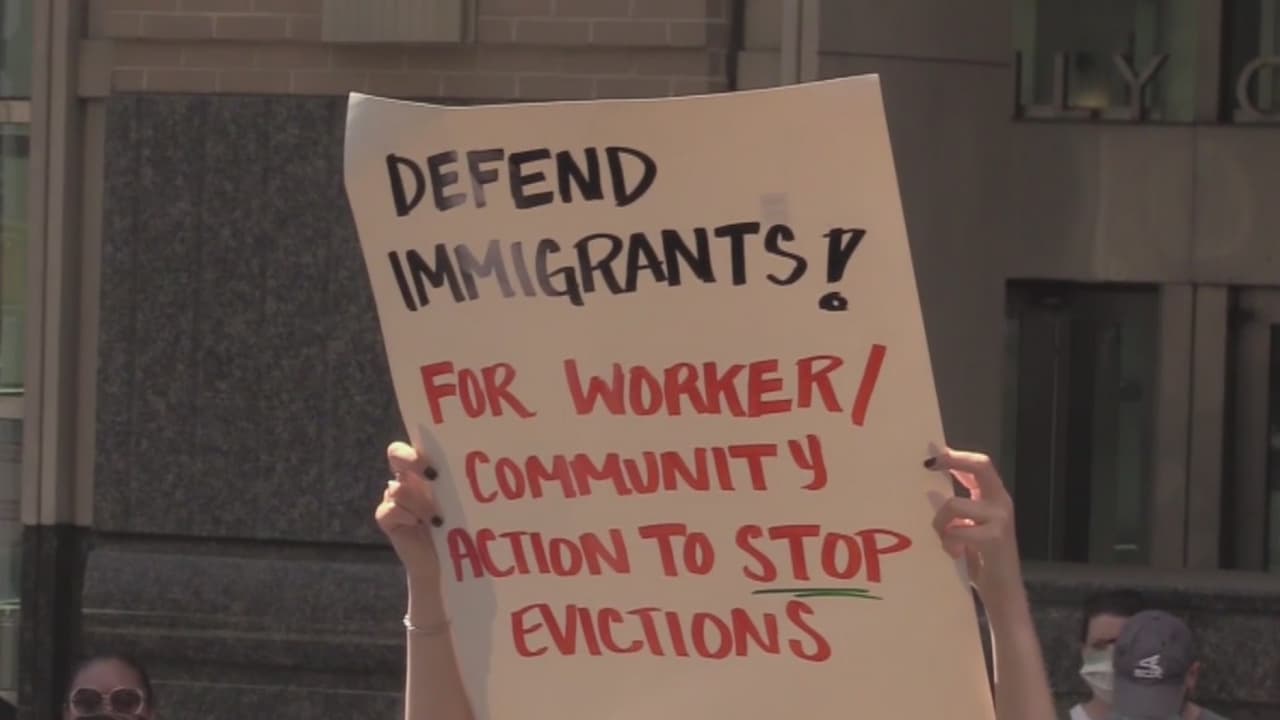 DEFEND
IMMIGRANTS!
FOR WORKER/
COMMUNITY
ACTION TO STOP
EVICTIONS
LLY C